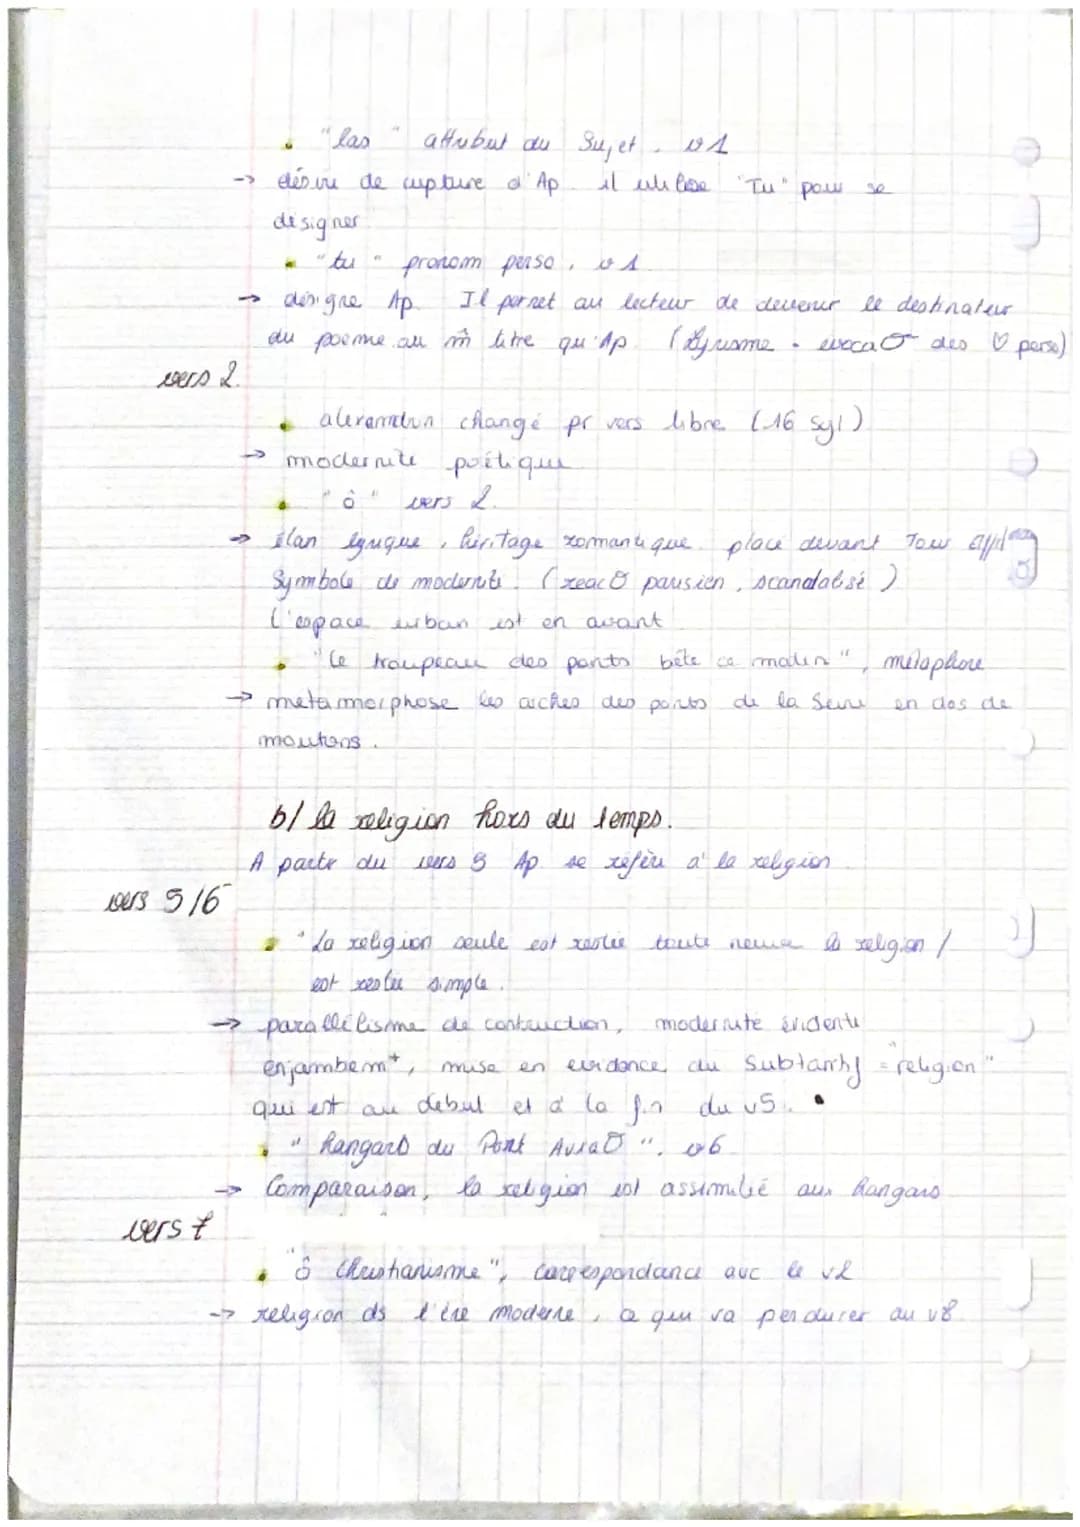 • "las" attribut du Sujet. v1
-> désire de rupture d'Ap. il utilise "Tu" pour se
désigner
• "tu" pronom perso, v1
-> désigne Ap. Il permet au lecteur de devenir le destinateur
du poeme au m̂ titre qu'Ap. (lyrisme - evocaO des ♡ perso)
vers 2.
• alexandrin changé pr vers libre (16 syl)
-> modernite poétique
• "ô" vers 2.
-> élan lyrique, héritage romantique. place devant Tour eiffel
Symbole de modernité. (reacO parisien, scandalisé)
L'espace urban est en avant
• "le troupeau des ponts bêle ce matin", métaphore
-> metamorphose les arches des ponts de la Seine en dos de
moutons.
b/ la religion hors du temps.
A partir du vers 5 Ap se réfère a' la religion.
vers 5/6
• "La religion seule est restée toute neuve la religion /
est restée simple.
-> parallélisme de contruction, modernité évidente
enjambemt, mise en evidance du Subtantif = "religion"
qui est au debut et à la fin du v5.
• "hangars du Port AviaO". v6
-> Comparaison, la religion est assimilié aux hangars
vers 7
• "ô Christianisme", correspondance avc le v2
-> religion ds l'ère moderne, ce qui va perdurer au v8.